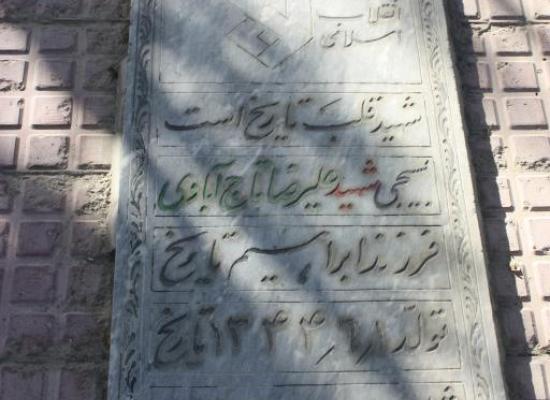 انقلاب
اسلامی
شهید قلب تاریخ است
بسیجی شهید علیرضا تاج آبادی
فرزند ابراهیم تاریخ
تولد ۱۳۴۴٫۶٫۱ تاریخ